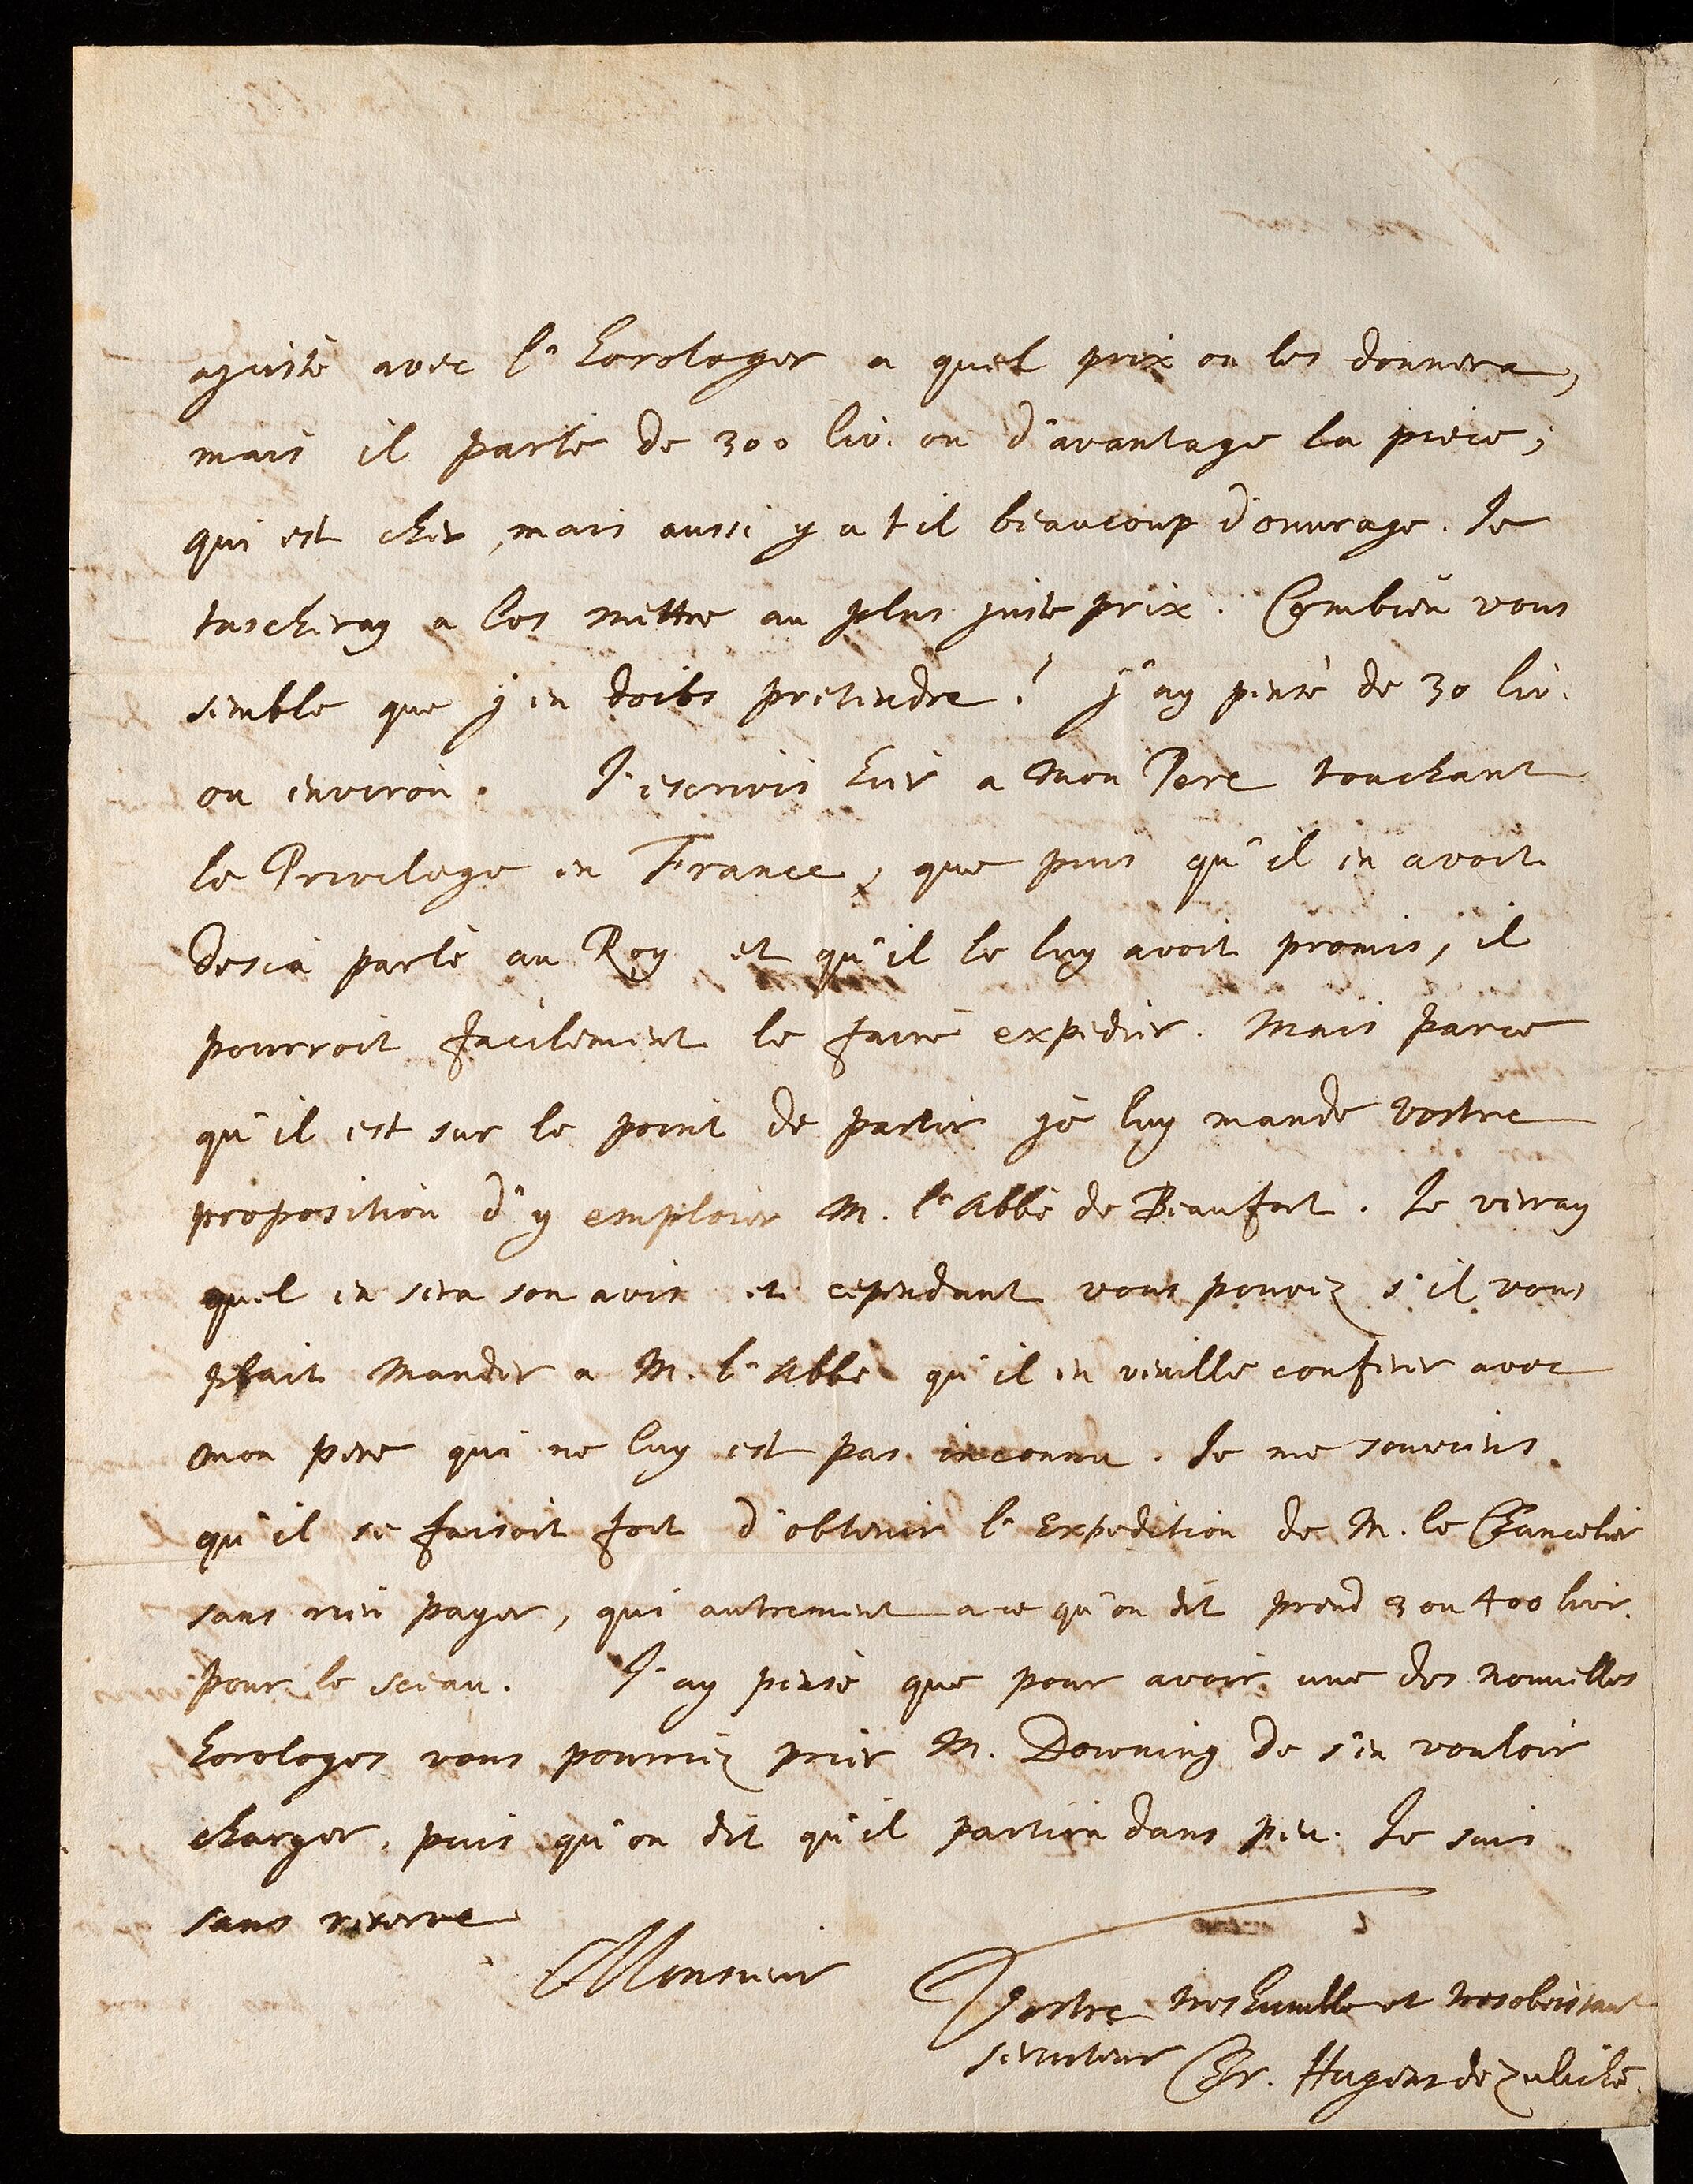 ajustè avec l'horologer a quel prix on les donnera,
mais il parle de 300 liv. ou d'avantage la piece;
qui est cher, mais aussi y a t il beaucoup d'ouvrage. Je
tascheray a les mettre au plus juste prix. Combien vous
semble que j'en doibs pretendre? j'ay pensè de 30 liv.
ou environ. J'escrivis hier a Mon Pere touchant
le Privilege en France, que puis qu'il en avoit
desia parlè au Roy et qu'il le luy avoit promis, il
pourroit facilement le faire expedier. Mais parce
qu'il est sur le point de partir je luy mande vostre
proposition d'y emploier M. l'Abbè de Beaufort. Je verray
quel en sera son avis et cependant vous pouvez s'il vous
plait mander a M. l'Abbè qu'il en veuille conferer avec
mon pere qui ne luy est pas inconnu. Je me souviens
qu'il se faisoit fort d'obtenir l'Expedition de M. le Chancelier
sans rien payer, qui autrement a ce qu'on dit prend 3 ou 400 livr.
pour le sceau. J'ay pensè que pour avoir une des nouvelles
horologes vous pourriez prier M. Downing de s'en vouloir
charger, puis qu'on dit qu'il partira dans peu. Je suis
sans reserve
Monsieur
Vostre treshumble et tresobeissant
serviteur Chr. Hugens de Zulichem.